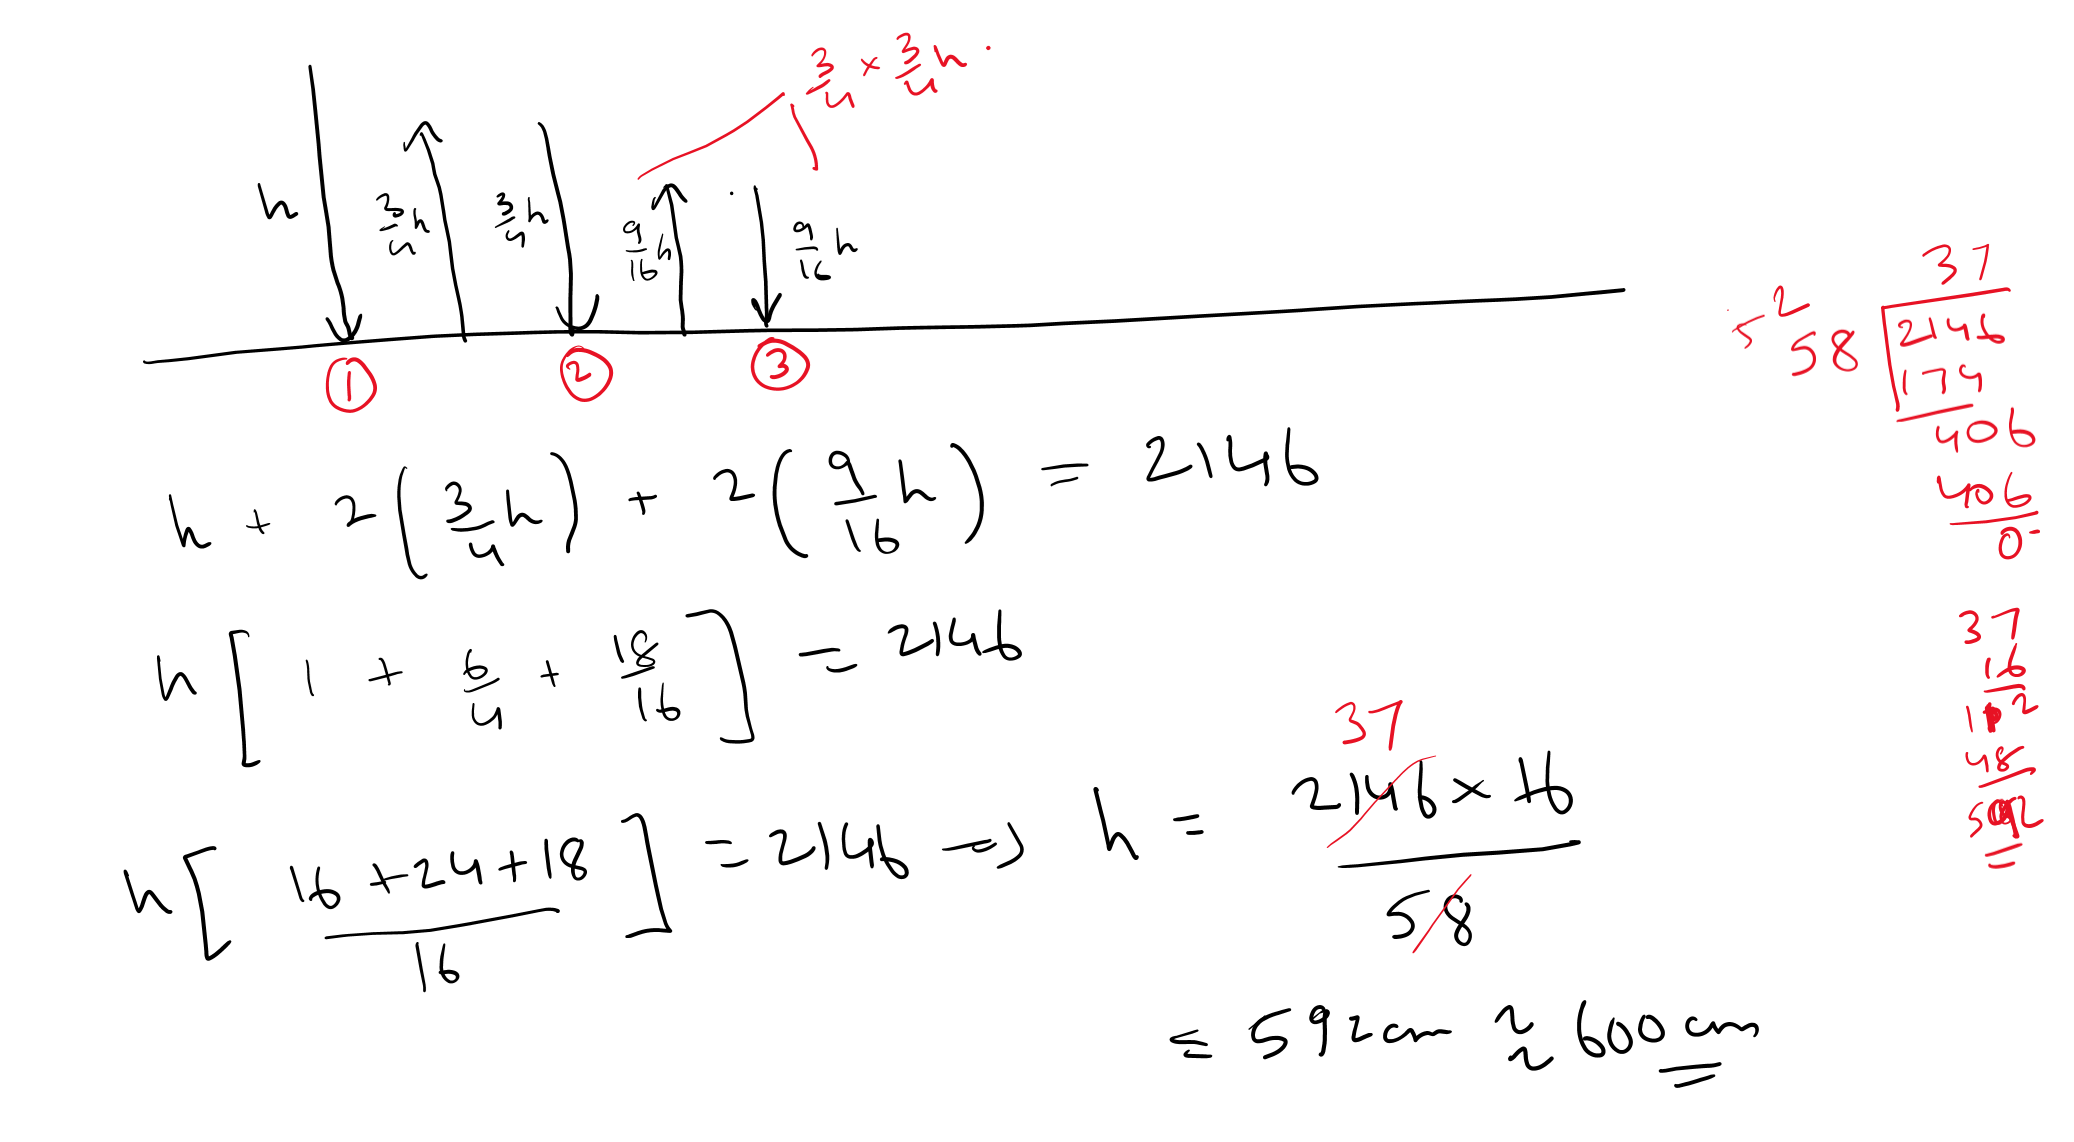 3/4 × 3/4 h .
h 3/4 h 3/4 h 9/16 h 9/16 h
① ② ③
h + 2(3/4 h) + 2(9/16 h) = 2146
h[1 + 6/4 + 18/16] = 2146
h[(16 + 24 + 18)/16] = 2146 => h = (2146 × 16)/58
37
= 592 cm ≈ 600 cm
37
5 2
58 2146
174
406
406
0
37
16
48
592